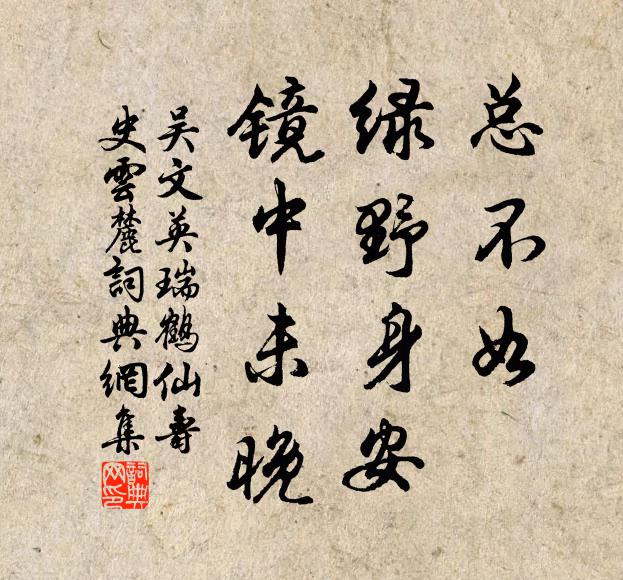 总不如
绿野身安
镜中未晚
吴文英瑞鹤仙寿
史雲麓詞典網集
詞典
网印